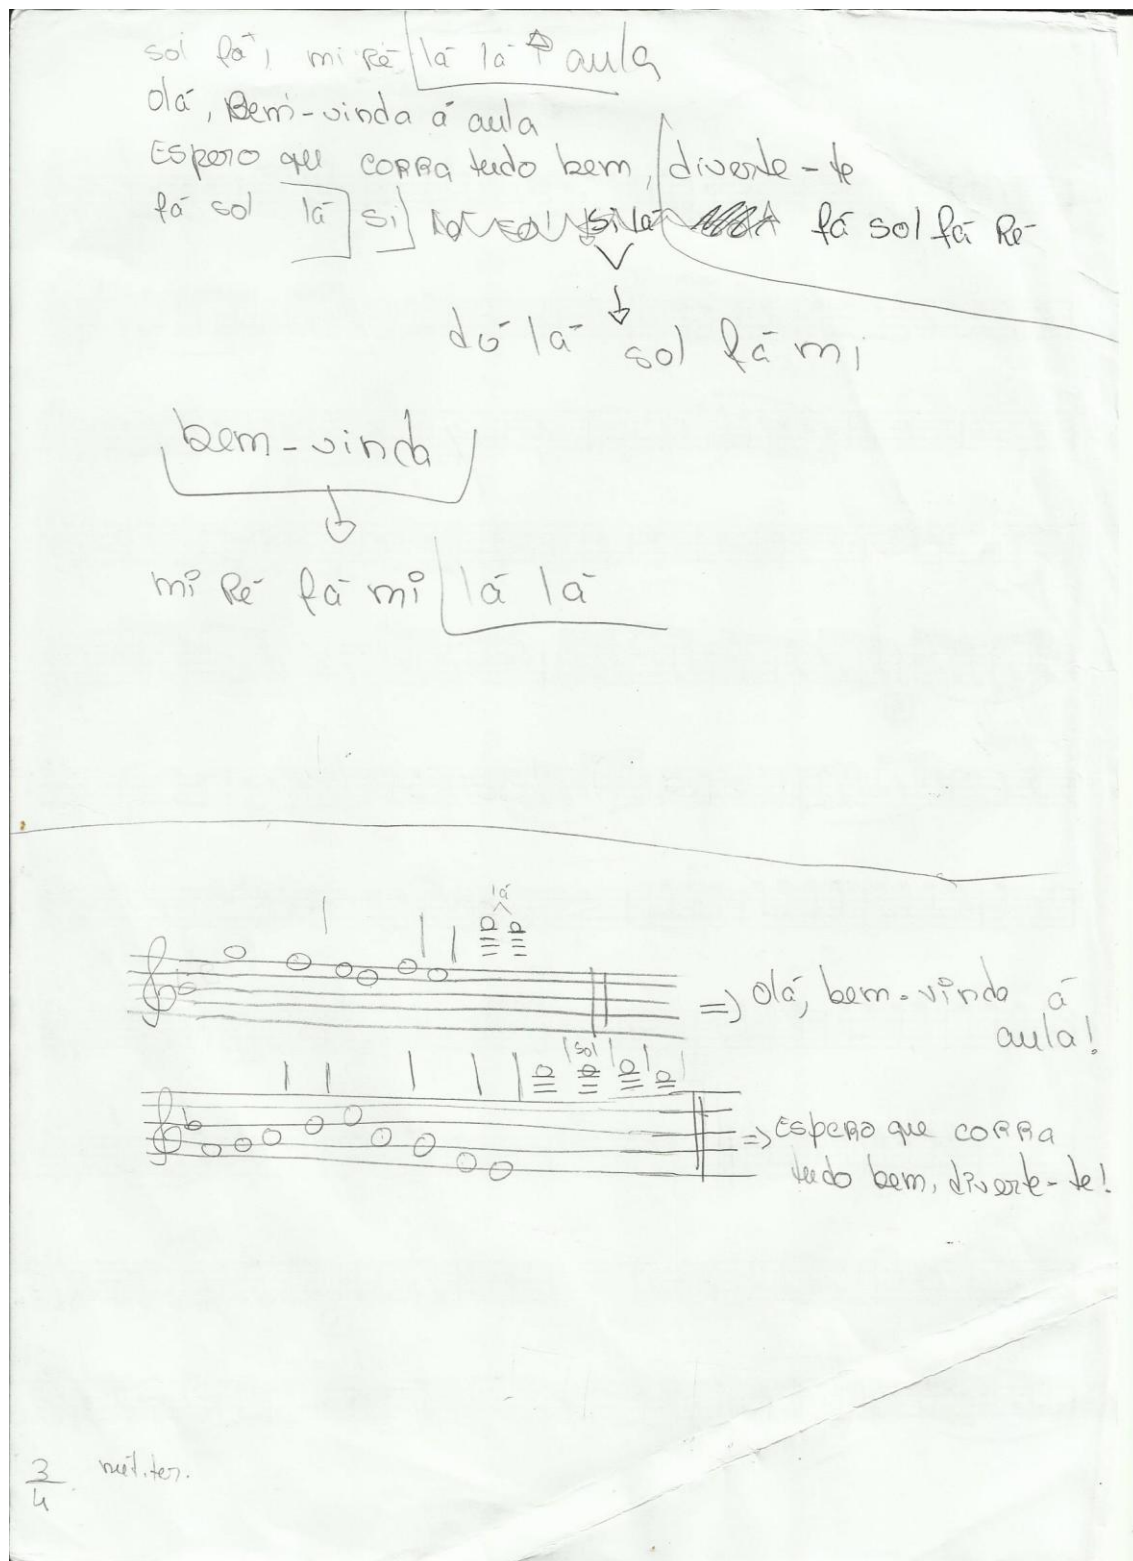 sol fá, mi Ré lá lá aula
Olá, Bem-vinda á aula
Espero que corra tudo bem, diverte-te
fá sol lá si fá sol fá Ré
dó lá sol fá mi
bem-vinda
mi Ré fá mi lá lá
lá
=> Olá, bem-vinda á
aula!
sol
=> Espero que corra
tudo bem, diverte-te!
3
4